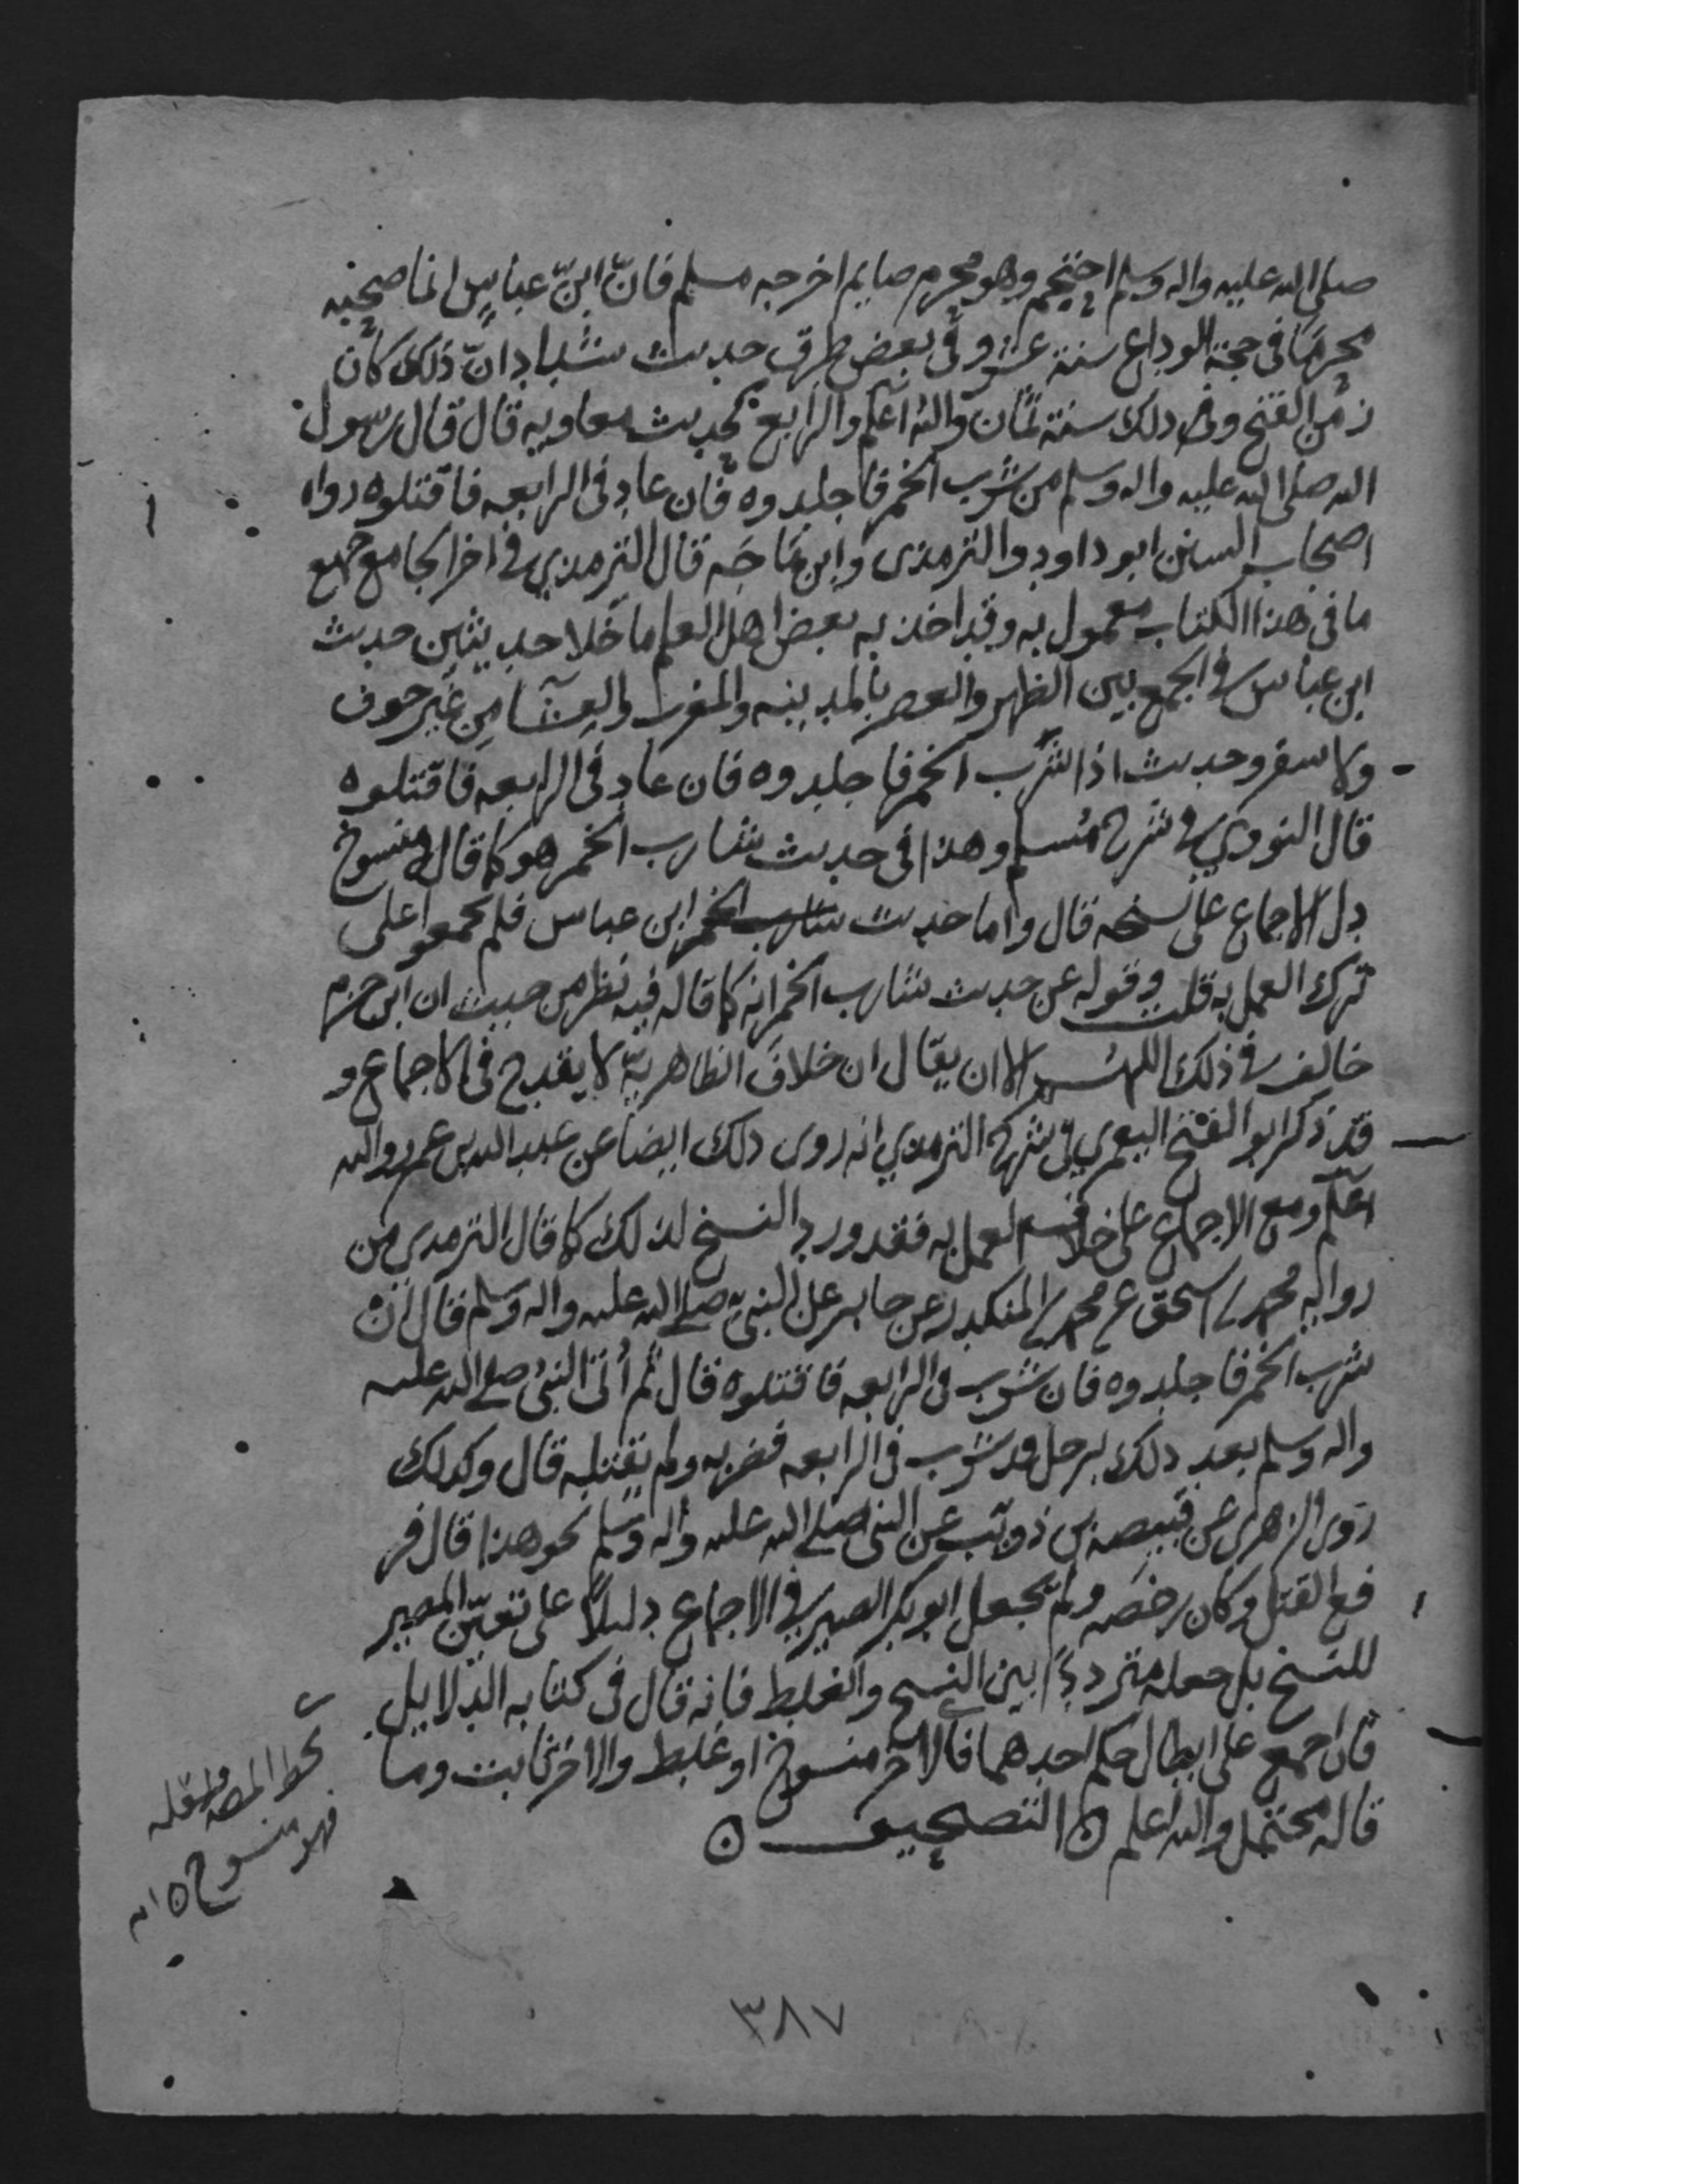 صلى الله عليه واله وسلم احتجم وهو محرم صايم اخرجه مسلم فانّ ابنّ عباسٍ انما صحبه
محرمًا في حجة الوداع سنة عشر وفي بعض طرق حديث شداد انّ ذلك كان
زمن الفتح وذلك سنة ثمان والله اعلم والرابع كحديث معاويه قال قال رسول
الله صلى الله عليه واله وسلم من شرب الخمر فاجلدوه فان عاد في الرابعه فاقتلوه رواه
اصحاب السنن ابو داود والترمذى وابن ماجه قال الترمذي في اخر الجامع جميع
ما في هذا الكتاب معمول به وقد اخذ به بعض اهل العلم ما خلا حديثين حديث
ابن عباس في الجمع بين الظهر والعصر بالمدينه والمغرب والعشآ من غير خوف
ولا سفر وحديث اذا شرب الخمر فاجلدوه فان عاد في الرابعه فاقتلوه
قال النووي في شرح مسلم وهذا في حديث شارب الخمر هو كما قال منسوخ
دل الاجماع على نسخه قال واما حديث شارب الخمر ابن عباس فلم يجمعوا على
ترك العمل به قلت وقوله عن حديث شارب الخمر انه كما قاله فيه نظر من حيث ان ابن حزم
خالف في ذلك اللهم الا ان يقال ان خلاف الظاهريّة لا يقدح في الاجماع و
قد ذكر ابو الفتح اليعمري في شرح الترمذي انه روى ذلك ايضا عن عبد الله بن عمرو والله
اعلم ومع الاجماع على خلاف العمل به فقد ورد النسخ لذلك كما قال الترمذي من
رواية محمد بن اسحق عن محمد بن المنكدر عن جابر عن النبي صلى الله عليه واله وسلم قال ان
شرب الخمر فاجلدوه فان شرب في الرابعه فاقتلوه قال ثم اُتى النبي صلى الله عليه
واله وسلم بعد ذلك برجل قد شرب في الرابعه فضربه ولم يقتله قال وكذلك
روى الزهري عن قبيصة بن ذويب عن النبي صلى الله عليه واله وسلم نحو هذا قال فر
فع القتل وكان رخصه ولم يجعل ابو بكر الصيرفي الاجماع دليلاً على تعيّن المصير
للنسخ بل جعله مترددًا بين النسخ والغلط فانه قال في كتابه الدلايل
فان اجمع على ابطال حكم احدهما فالاخر منسوخ او غلط والاخر ثابت وما
قاله محتمل والله اعلم ۞ التصحيف ۞
بخط المصنف
فهو منسوخ
٣٨٧